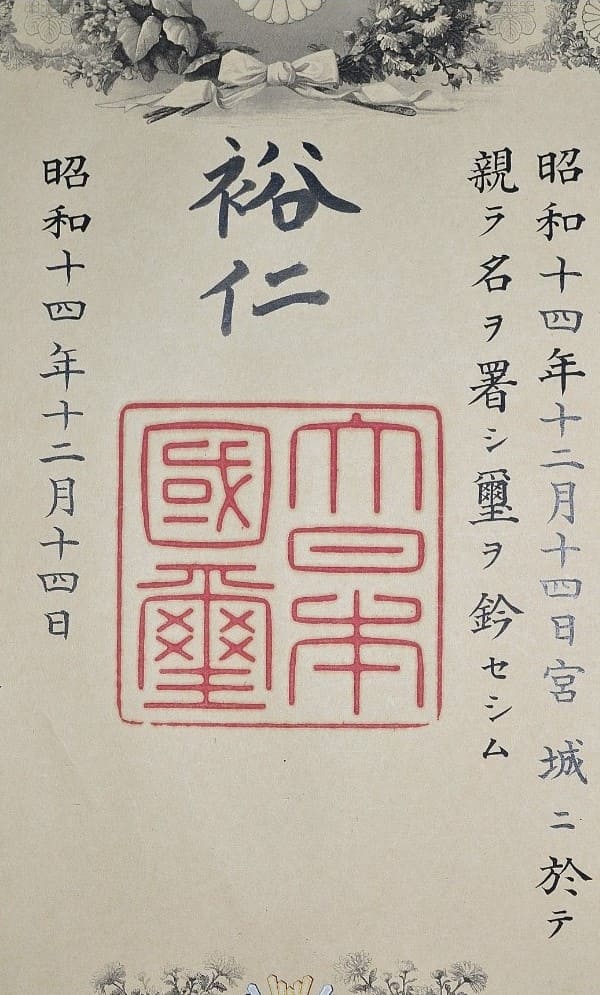 昭和十四年十二月十四日宮城ニ於テ
親ラ名ヲ署シ璽ヲ鈐セシム
裕仁
大日本
國璽
昭和十四年十二月十四日